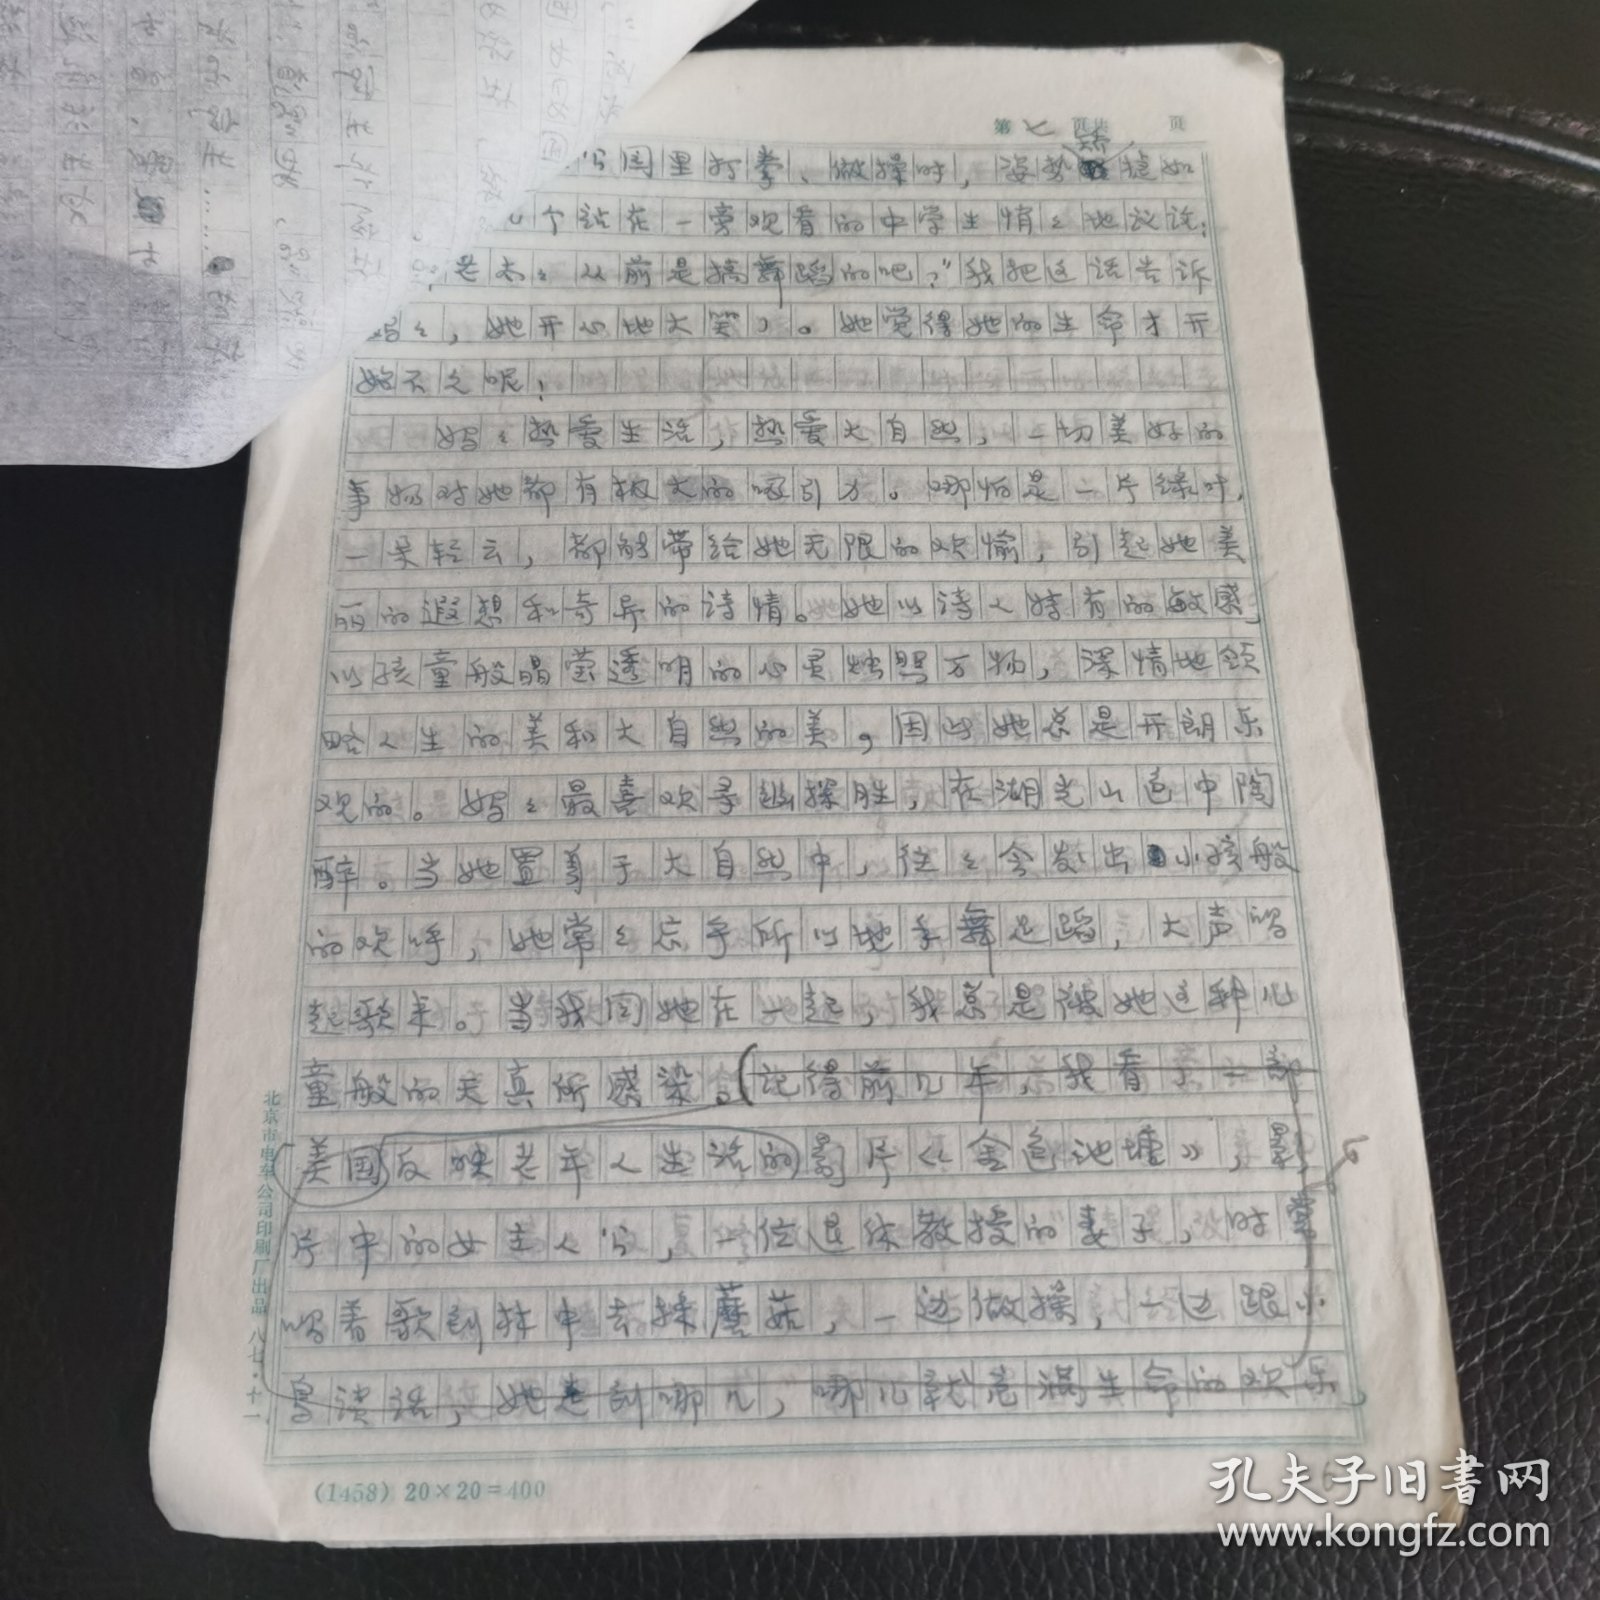 第七页 共 页
公园里打拳、做操时，姿势矫捷如
个站在一旁观看的中学生悄々地议论：
老太々以前是搞舞蹈的吧？”我把这话告诉
妈々，她开心地大笑了。她觉得她的生命才开
始不久呢！
妈々热爱生活，热爱大自然，一切美好的
事物对她都有极大的吸引力。哪怕是一片绿叶，
一朵轻云，都能带给她无限的欢愉，引起她美
丽的遐想和奇异的诗情。她以诗人特有的敏感，
以孩童般晶莹透明的心灵烛照万物，深情地领
略人生的美和大自然的美，因此她总是开朗乐
观的。妈々最喜欢寻幽探胜，在湖光山色中陶
醉。当她置身于大自然中，往々会发出小孩般
的欢呼，她常々忘乎所以地手舞足蹈，大声唱
起歌来。当我同她在一起，我总是被她这种儿
童般的天真所感染。记得前几年，我看了一部
美国反映老年人生活的影片《金色池塘》，影
片中的女主人公，一位退休教授的妻子，时常
唱着歌到林中去採蘑菇，一边做操，一边跟小
鸟谈话，她走到哪儿，哪儿就充满生命的欢乐，
北京市电车公司印刷厂出品 八七·十一
(1458) 20×20=400
孔夫子旧书网
www.kongfz.com